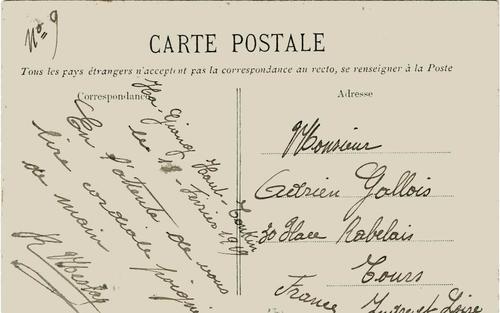 No. 9
CARTE POSTALE
Tous les pays étrangers n'acceptent pas la correspondance au recto, se renseigner à la Poste
Correspondance
Ha-Giang Haut-Tonkin
le Février
En l'attente de vous
lire cordiale poignée
de main
Adresse
Monsieur
Adrien Gallois
30 Place Rabelais
Tours
France Indre et Loire